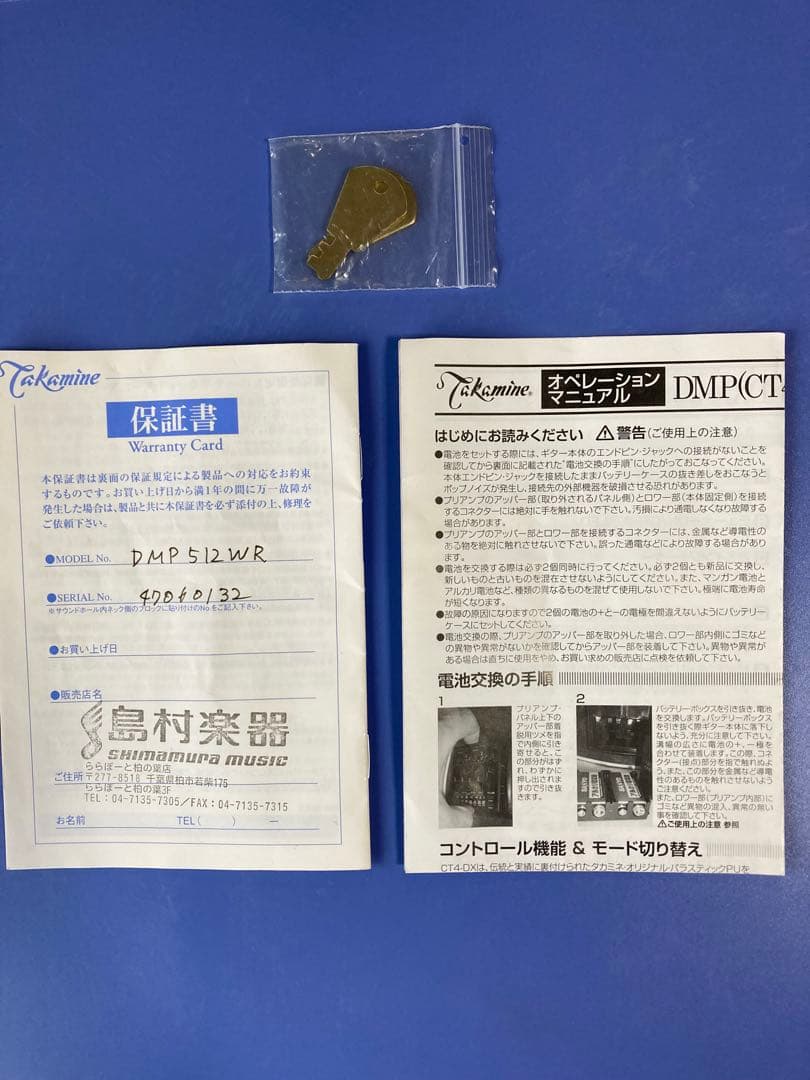 Takamine
保証書
Warranty Card
本保証書は裏面の保証規定による製品への対応をお約束
するものです。お買い上げ日から満1年の間に万一故障が
発生した場合は、製品と共に本保証書を必ず添付の上、修理を
ご依頼下さい。
●MODEL No. DMP512WR
●SERIAL No. 47060132
※サウンドホール内ネック側のブロックに貼り付けのNo.をご記入下さい。
●お買い上げ日
●販売店名
島村楽器
Shimamura music
ららぽーと柏の葉店
ご住所 〒277-8518 千葉県柏市若柴175
ららぽーと柏の葉3F
TEL:04-7135-7305/FAX:04-7135-7315
お名前 TEL( ) ー
Takamine® オペレーション マニュアル DMP(CT4
はじめにお読みください ⚠警告(ご使用上の注意)
●電池をセットする際には、ギター本体のエンドピン・ジャックへの接続がないことを
確認してから裏面に記載された"電池交換の手順"にしたがっておこなってください。
本体エンドピン・ジャックを接続したままバッテリーケースの抜き差しをおこなうと
ポップノイズが発生し、接続先の外部機器を破損させる恐れがあります。
●プリアンプのアッパー部(取り外されるパネル側)とロワー部(本体固定側)を接続
するコネクターには絶対に手を触れないで下さい。汚損により通電しなくなり故障する
場合があります。
●プリアンプのアッパー部とロワー部を接続するコネクターには、金属など導電性の
ある物を絶対に触れさせないで下さい。誤った通電などにより故障する場合があり
ます。
●電池を交換する際は必ず2個同時に行ってください。必ず2個とも新品に交換し、
新しいものと古いものを混在させないようにしてください。また、マンガン電池と
アルカリ電池など、種類の異なるものを混ぜて使用しないで下さい。極端に電池寿命
が短くなります。
●故障の原因になりますので2個の電池の+と−の電極を間違えないようにバッテリー
ケースにセットしてください。
●電池交換の際、プリアンプのアッパー部を取り外した場合、ロワー部内側にゴミなど
の異物や異常がないかを確認してからアッパー部を装着して下さい。異物や異常が
ある場合は直ちに使用をやめ、お買い求めの販売店に点検を依頼して下さい。
電池交換の手順
1
プリアンプ・
パネル上下の
アッパー部着
脱用ツメを指
で内側に引き
寄せると、こ
の部分がはず
れ、わずかに
押し出されま
すので引き抜
きます。
2
バッテリーボックスを引き抜き、電池
を交換します。バッテリーボックス
を引き抜く際ギター本体に落下し
ないよう、充分に注意して下さい。
溝幅の広さに電池の+、−極を
合わせて装着します。この際、コネ
クター(接点)部分を指で触れぬよ
う、また、この部分を金属など導電
性のあるもので触れさせないよう
ご注意ください。
また、ロワー部(プリアンプ内部)に
ゴミなど異物の混入、異常の無い
事を確認して下さい。
⚠ご使用上の注意 参照
コントロール機能 & モード切り替え
CT4-DXは、伝統と実績に裏付けられたタカミネ・オリジナル・パラスティックPUを